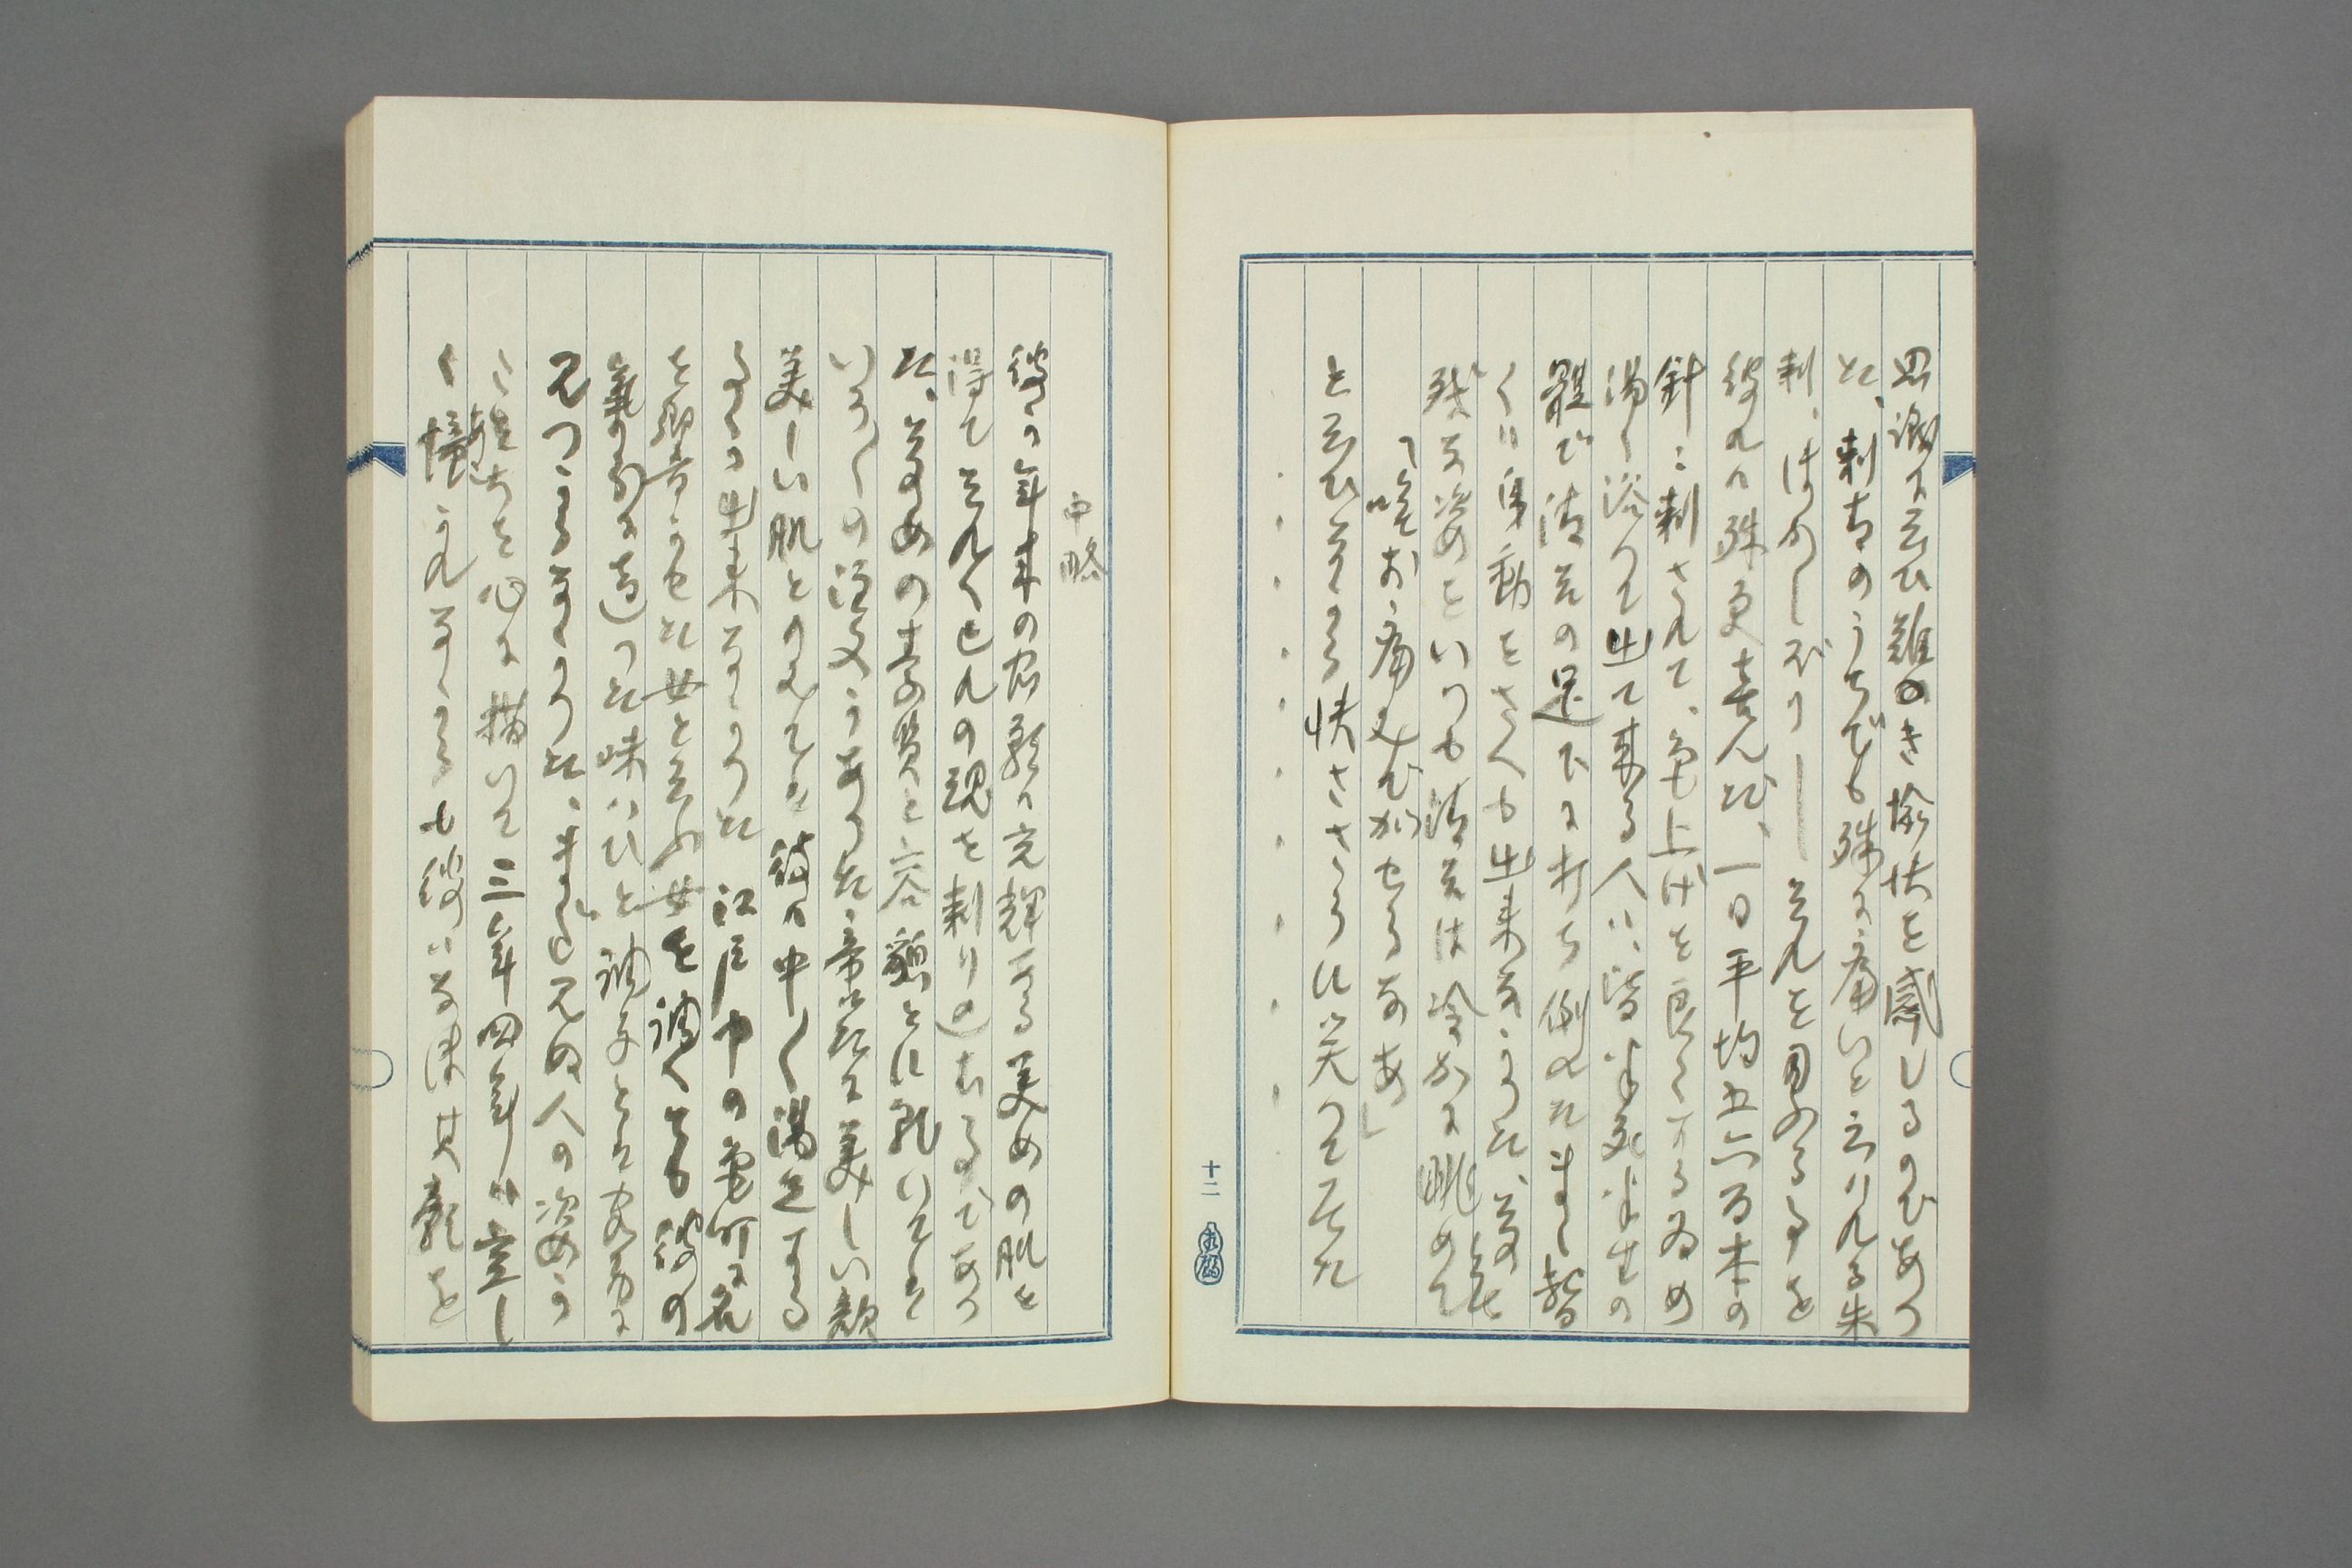 思議に云ひ難き愉快を感じるのであつ
た。刺青のうちでも殊に痛いと云はれる朱
刺、ぼかしぼり――それを用ふる事を
彼れは殊更喜んだ。一日平均五六百本の
針に刺されて、色上げを良くする為め
湯へ浴つて出て来る人は、皆半死半生の
體で清吉の足下に打ち倒れたまゝ、暫
くは身動きさへも出来なかつた。その無
残な姿をいつも清吉は冷かに眺めて
「嘸お痛みでがせうなあ」
と云ひながら快ささうに笑つて居た
・・・・・・・・・
十二
中略
彼の年来の宿願は光輝ある美女の肌を
得てそれへ己れの魂を刺り込むことであつ
た。その女の素質と容貌とに就いては
いろ〳〵の注文があつた。啻だに美しい顔
美しい肌とのみでは彼は中々満足する
ことが出来なかつた 江戸中の色町に名
を響かせた女と云ふ女を調べても彼の
氣分に適つた味はひと調子とは容易に
見つからなかつた。まだ見ぬ人の姿か
たちを心に描いて三年四年は空し
く憧れながらも彼はなほ其願を